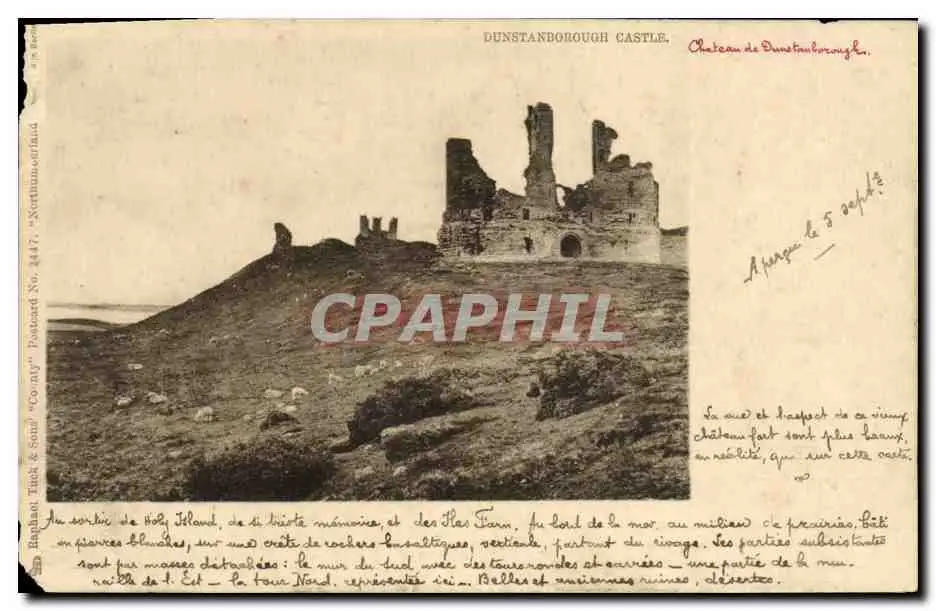 DUNSTANBOROUGH CASTLE.
Chateau de Dunstanborough.
Aperçu le 5 septe
La vue et l'aspect de ce vieux
château fort sont plus beaux,
en réalité, que sur cette carte.
CPAPHIL
Raphael Tuck & Sons' "County" Postcard No. 2447. "Northumberland
Au sortir de Holy Island, de si triste mémoire, et des Iles Farn. Au bord de la mer au milieu de prairies, bâti
en pierres blanches, sur une crête de rochers basaltiques, verticale, partant du rivage. Les parties subsistantes
sont par masses détachées : le mur du sud avec des tours rondes et carrées — une partie de la mu-
raille de l'Est — la tour Nord, représentée ici —. Belles et anciennes ruines, désertes.